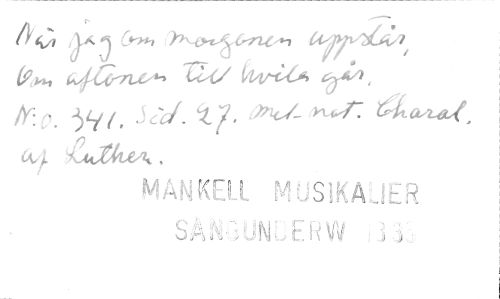 När jag om morgonen uppstår,
Om aftonen till hvila går.
N:o. 341. Sid. 27. Mel-not. Choral.
af Luther.
MANKELL MUSIKALIER
SANGUNDERW